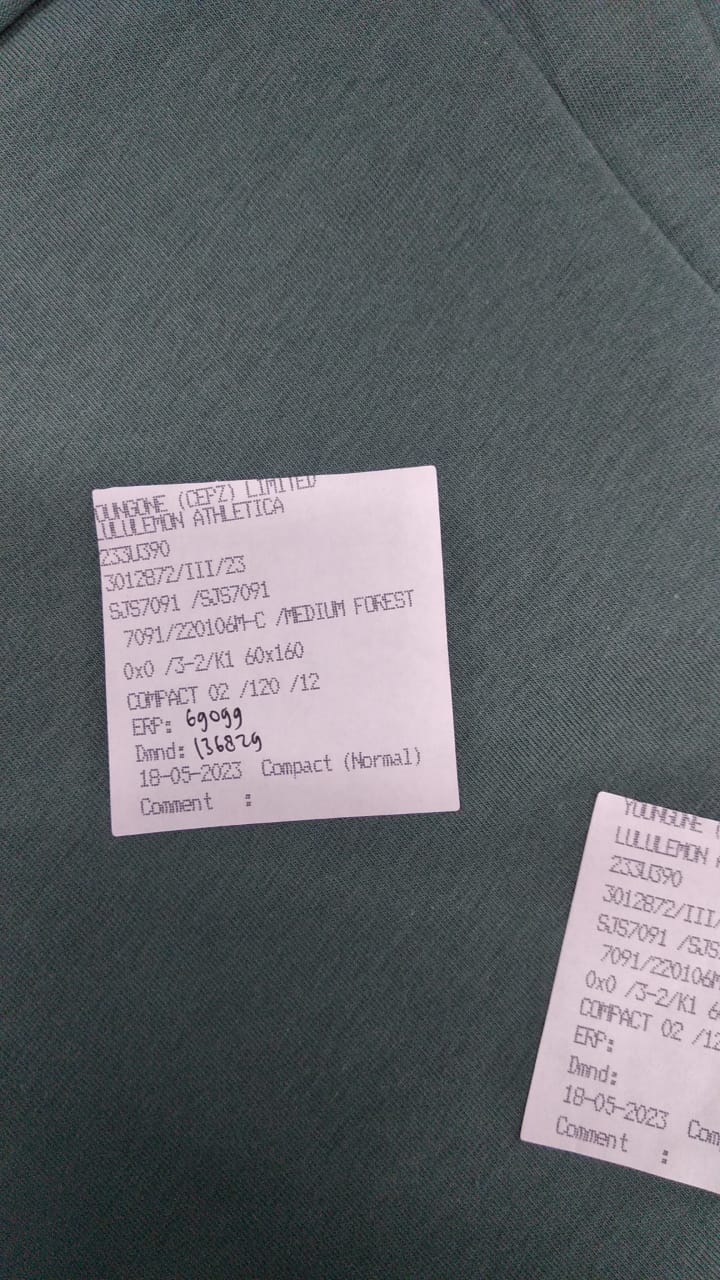 YOUNGONE (CEPZ) LIMITED
LULULEMON ATHLETICA
233U390
3012872/III/23
SJS7091 /SJS7091
7091/220106M-C /MEDIUM FOREST
0x0 /3-2/K1 60x160
COMPACT 02 /120 /12
ERP: 69099
Dmnd: 136829
18-05-2023 Compact (Normal)
Comment :
YOUNGONE (
LULULEMON A
233U390
3012872/III/
SJS7091 /SJS
7091/220106M
0x0 /3-2/K1 6
COMPACT 02 /12
ERP:
Dmnd:
18-05-2023 Com
Comment :